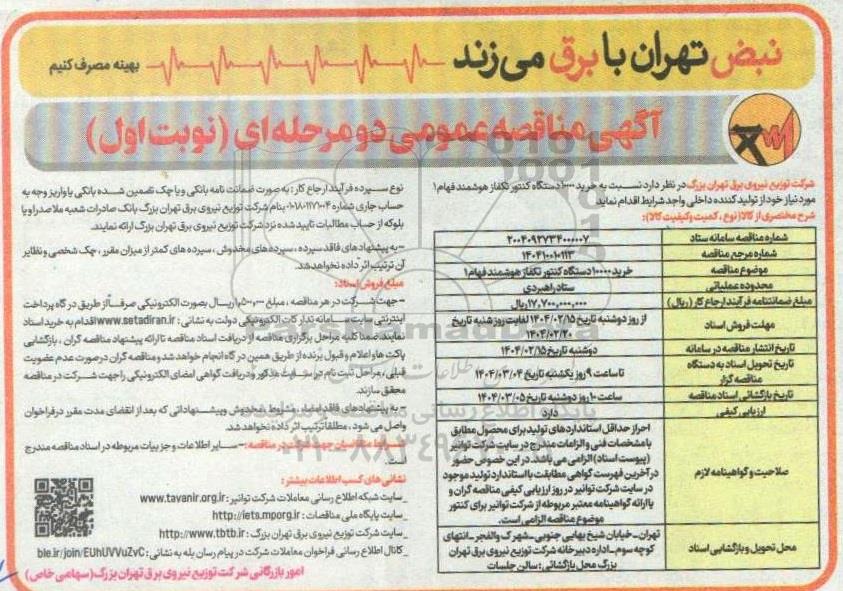 نبض تهران با برق می زند
بهینه مصرف کنیم
آگهی مناقصه عمومی دو مرحله ای (نوبت اول)
شرکت توزیع نیروی برق تهران بزرگ در نظر دارد نسبت به خرید ۱۰۰۰۰ دستگاه کنتور تکفاز هوشمند فهام۱
مورد نیاز خود از تولید کننده داخلی واجد شرایط اقدام نماید.
شرح مختصری از کالا (نوع ، کمیت وکیفیت کالا):
شماره مناقصه سامانه ستاد ۲۰۰۴۰۹۲۷۳۴۰۰۰۰۰۷
شماره مرجع مناقصه ۱۴۰۴۱۰۰۱۰۱۱۳
موضوع مناقصه خرید ۱۰۰۰۰ دستگاه کنتور تکفاز هوشمند فهام۱
محدوده عملیاتی ستاد راهبردی
مبلغ ضمانتنامه فرآیند ارجاع کار (ریال) ۱۷,۷۰۰,۰۰۰,۰۰۰ ریال
مهلت فروش اسناد از روز دوشنبه تاریخ ۱۴۰۴/۰۲/۱۵ لغایت روز شنبه تاریخ
۱۴۰۴/۰۲/۲۰
تاریخ انتشار مناقصه در سامانه دوشنبه تاریخ ۱۴۰۴/۰۲/۱۵
تاریخ تحویل اسناد به دستگاه مناقصه گزار تا ساعت ۹ روز یکشنبه تاریخ ۱۴۰۴/۰۳/۰۴
تاریخ بازگشائی اسناد مناقصه ساعت ۱۰ روز دوشنبه تاریخ ۱۴۰۴/۰۳/۰۵
ارزیابی کیفی دارد
صلاحیت و گواهینامه لازم احراز حداقل استانداردهای تولید برای محصول مطابق
با مشخصات فنی و الزامات مندرج در سایت شرکت توانیر
(پیوست اسناد) الزامی می باشد. در این خصوص حضور
در آخرین فهرست گواهی مطابقت با استاندارد تولید موجود
در سایت شرکت توانیر در روز ارزیابی کیفی مناقصه گران و
یا ارائه گواهینامه معتبر مربوطه از شرکت توانیر برای کنتور
موضوع مناقصه الزامی است.
محل تحویل و بازگشایی اسناد تهران-خیابان شیخ بهایی جنوبی-شهرک والفجر-انتهای
کوچه سوم-اداره دبیرخانه شرکت توزیع نیروی برق تهران
بزرگ محل بازگشائی: سالن جلسات
نوع سپرده فرآیند ارجاع کار: به صورت ضمانت نامه بانکی و یا چک تضمین شده بانکی یا واریز وجه به
حساب جاری شماره بنام شرکت توزیع نیروی برق تهران بزرگ بانک صادرات شعبه ملاصدرا و یا
بلوکه از حساب مطالبات تایید شده نزد شرکت توزیع نیروی برق تهران بزرگ ارائه نمایند.
-به پیشنهادهای فاقد سپرده ، سپرده های مخدوش ، سپرده های کمتر از میزان مقرر ، چک شخصی و نظایر
آن ترتیب اثر داده نخواهد شد.
مبلغ فروش اسناد:
-جهت شرکت در هر مناقصه ، مبلغ ریال بصورت الکترونیکی صرفاً از طریق درگاه پرداخت
اینترنتی سایت سامانه تدارکات الکترونیکی دولت به نشانی : www.setadiran.ir اقدام به خرید اسناد
نمایند. ضمنا کلیه مراحل برگزاری مناقصه از دریافت اسناد مناقصه تا ارائه پیشنهاد مناقصه گران ، بازگشایی
پاکت ها و اعلام و قبول برنده از طریق همین درگاه انجام خواهد شد و مناقصه گران در صورت عدم عضویت
قبلی، مراحل ثبت نام در سایت مذکور و دریافت گواهی امضای الکترونیکی را جهت شرکت در مناقصه
محقق سازند.
-به پیشنهادهای فاقد امضاء، مشروط ، مخدوش و پیشنهاداتی که بعد از انقضای مدت مقرر در فراخوان
واصل می شود ، مطلقاً ترتیب اثر داده نخواهد شد.
شرایط متقاضیان جهت شرکت در مناقصه: -سایر اطلاعات و جزییات مربوطه در اسناد مناقصه مندرج
است
نشانی های کسب اطلاعات بیشتر :
_سایت شبکه اطلاع رسانی معاملات شرکت توانیر: www.tavanir.org.ir
_سایت پایگاه ملی مناقصات : http://iets.mporg.ir
_سایت شرکت توزیع نیروی برق تهران بزرگ : http://www.tbtb.ir
_کانال اطلاع رسانی فراخوان معاملات شرکت در پیام رسان بله به نشانی : ble.ir/join/EUhUVVuZvC
امور بازرگانی شرکت توزیع نیروی برق تهران بزرگ (سهامی خاص)